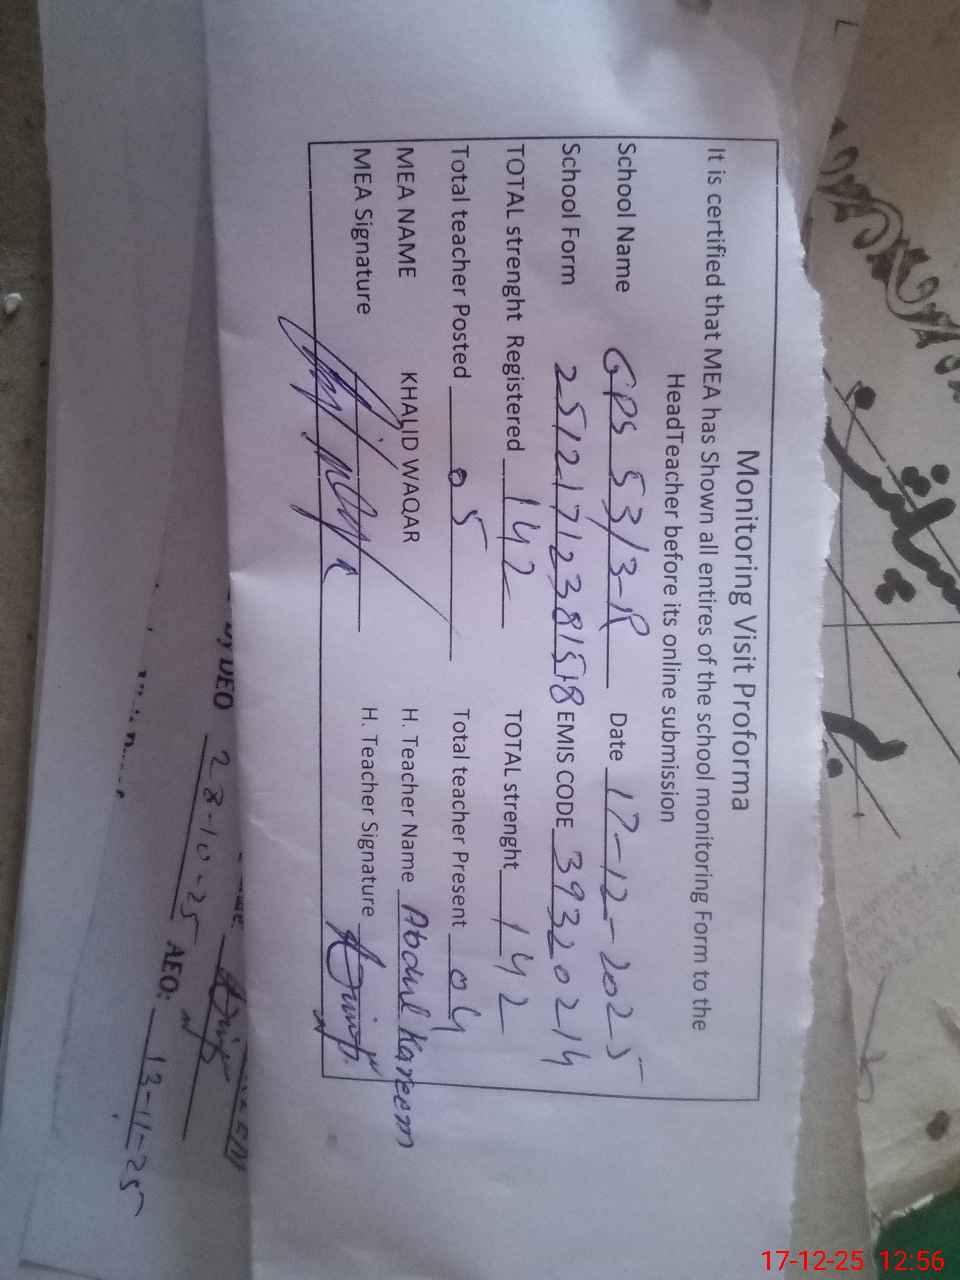 Monitoring Visit Proforma
It is certified that MEA has Shown all entires of the school monitoring Form to the
HeadTeacher before its online submission
School Name GPS 53/3-R Date 17-12-2025
School Form 25121712381518 EMIS CODE 39320214
TOTAL strenght Registered 142 TOTAL strenght 142
Total teacher Posted 05 Total teacher Present 04
MEA NAME KHALID WAQAR H. Teacher Name Abdul Kareem
MEA Signature H. Teacher Signature
DEO 28-10-25 AEO: 13-11-25
17-12-25 12:56